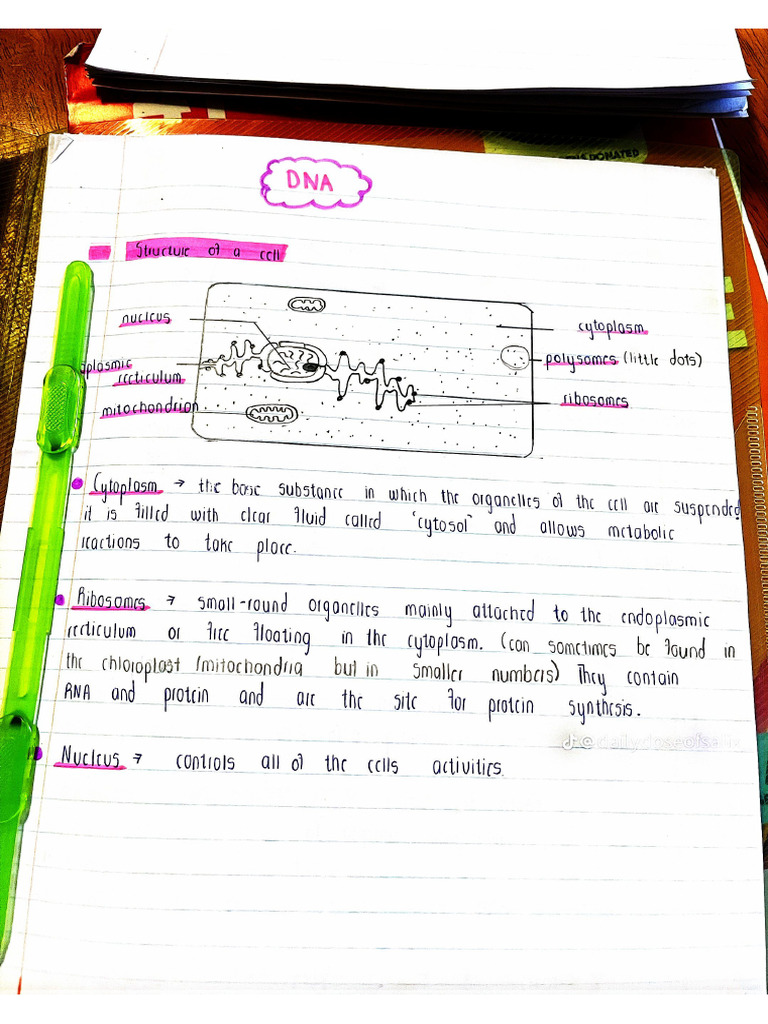 DONATED
DNA
Structure of a cell
nucleus
cytoplasm
plasmic
polysomes (little dots)
recticulum
mitochondrion
ribosomes
Cytoplasm → the base substance in which the organelles of the cell are suspended
it is filled with clear fluid called 'cytosol' and allows metabolic
reactions to take place.
Ribosomes → small-round organelles mainly attached to the endoplasmic
recticulum or free floating in the cytoplasm. (can sometimes be found in
the chloroplast /mitochondria but in smaller numbers) They contain
RNA and protein and are the site for protein synthesis.
Nucleus → controls all of the cells activities.